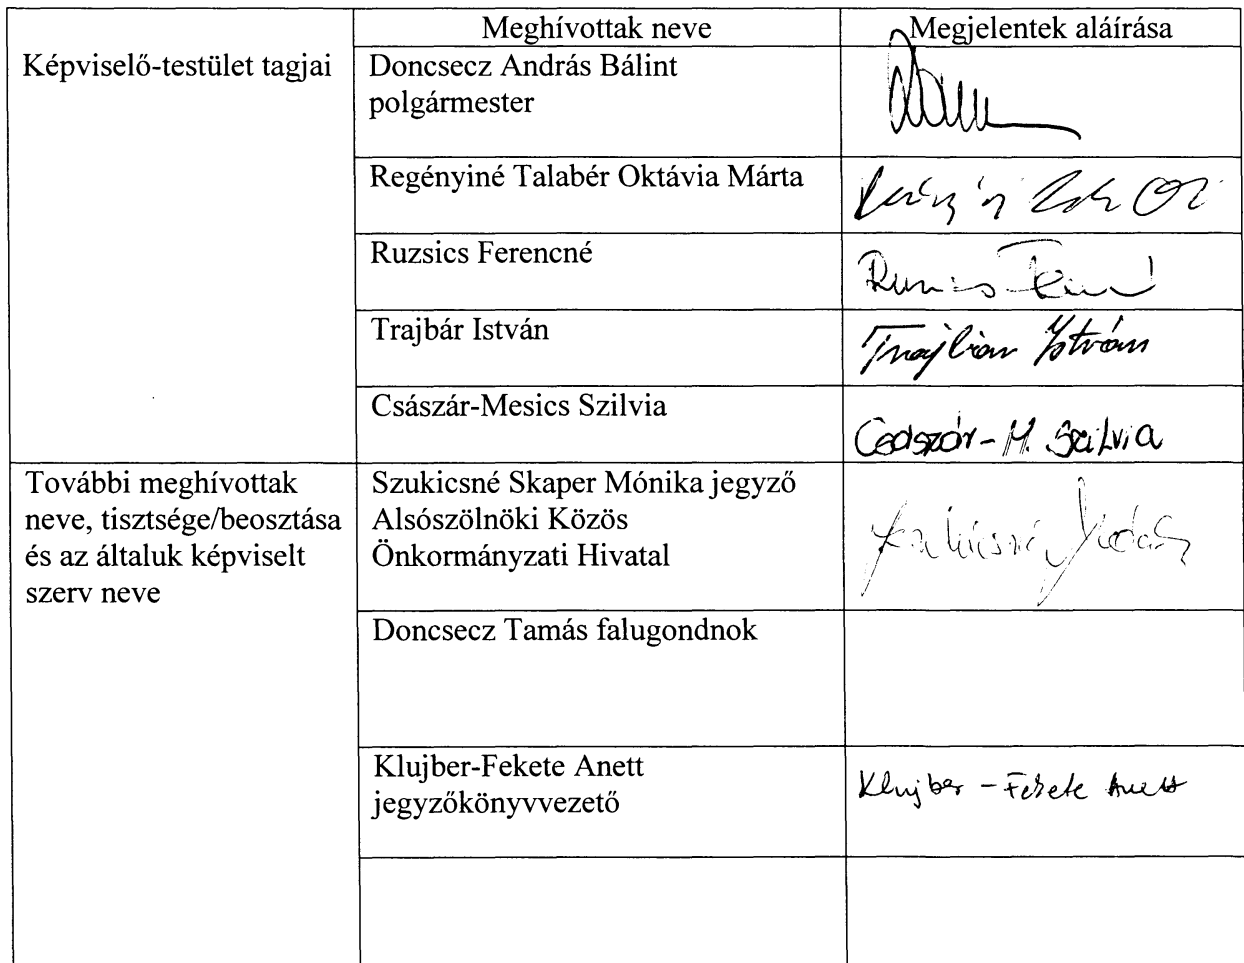 Meghívottak neve
Megjelentek aláírása
Képviselő-testület tagjai
Doncsecz András Bálint
polgármester
Regényiné Talabér Oktávia Márta
Ruzsics Ferencné
Trajbár István
Trajbár István
Császár-Mesics Szilvia
Császár-M. Szilvia
További meghívottak
neve, tisztsége/beosztása
és az általuk képviselt
szerv neve
Szukicsné Skaper Mónika jegyző
Alsószölnöki Közös
Önkormányzati Hivatal
Doncsecz Tamás falugondnok
Klujber-Fekete Anett
jegyzőkönyvvezető
Klujber - Fekete Anett